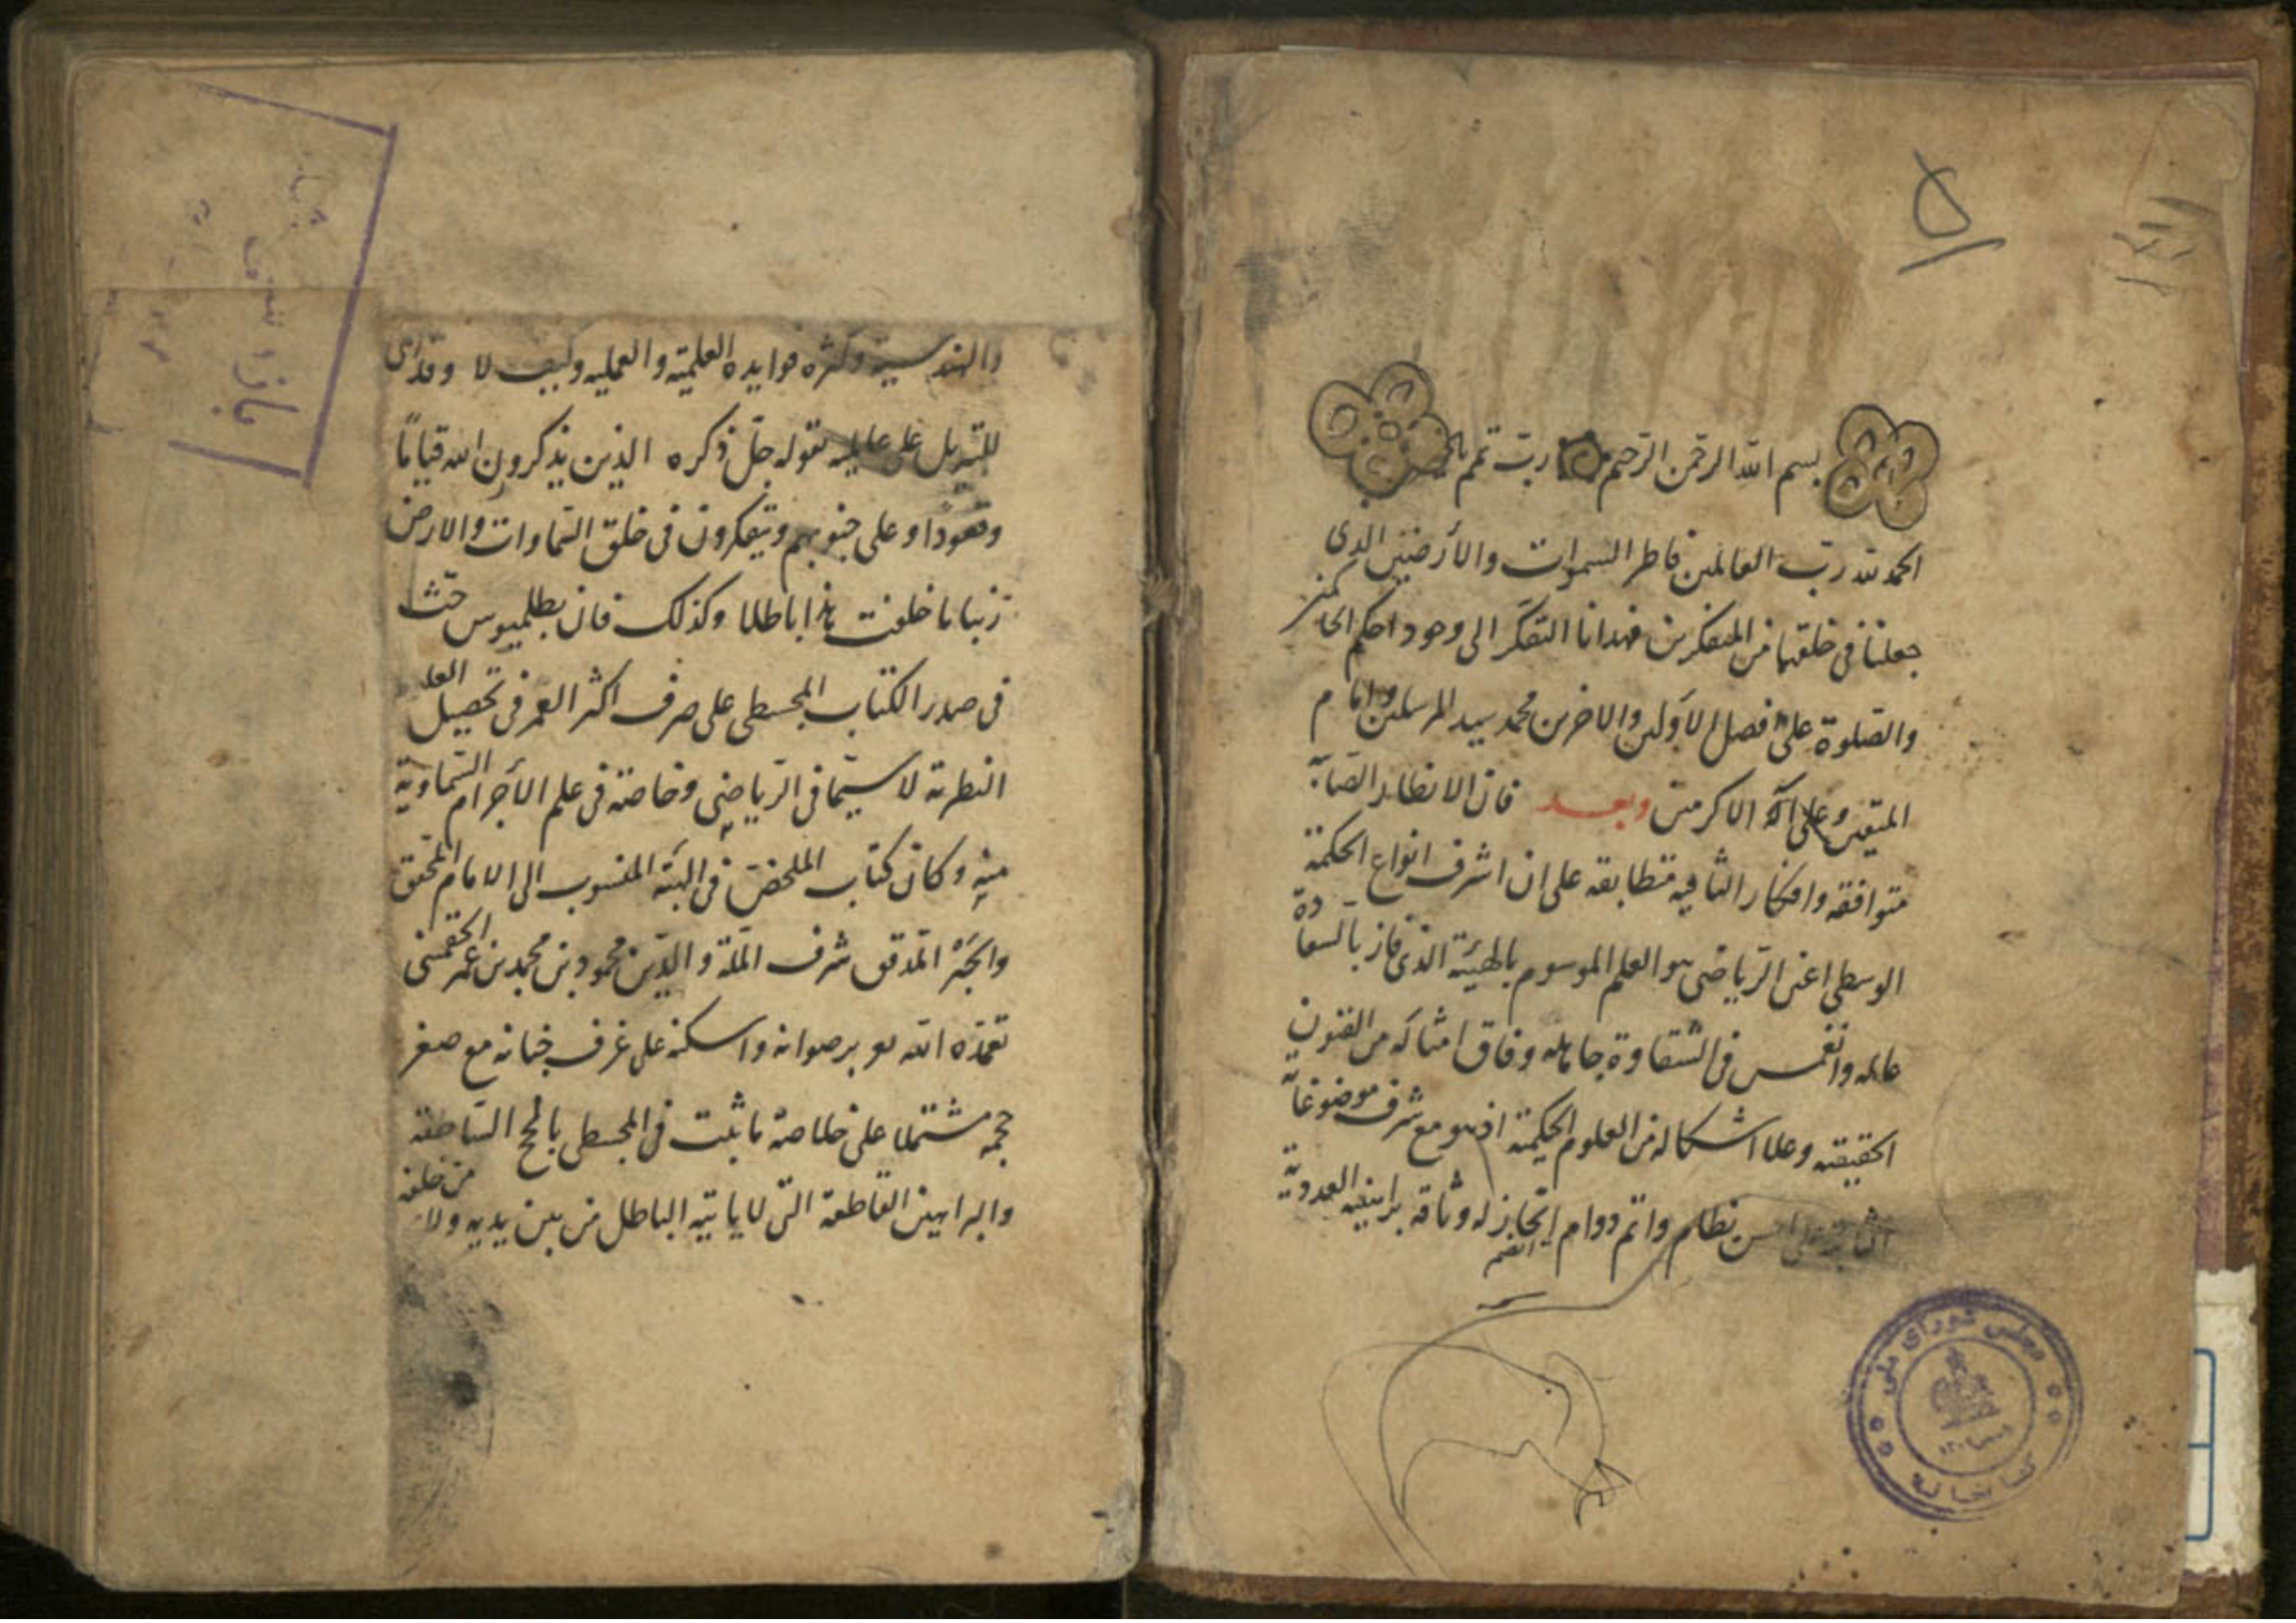 ۵
بسم الله الرحمن الرحيم رب تمم
الحمد لله رب العالمين فاطر السموات والأرضين الذى
جعلنا فى خلقهما من المتفكرين فهدانا التفكر الى وجود احكم الحاكمين
والصلوة على افضل الاولين والاخرين محمد سيد المرسلين وامام
المتقين وعلى آله الاكرمين وبعد فان الانظار الصائبة
متوافقه وافكار الثاقبه متطابقه على ان اشرف انواع الحكمة
الوسطى اعنى الرياضى هو العلم الموسوم بالهيئة الذى فاز بالسعادة
عالمه وانغمس فى الشقاوة جاهله وفاق امثاله من الفنون
الحقيقيه وعلا اشكاله من العلوم الحكمية اذ هو مع شرف موضوعاته
على احسن نظام واتم دوام وثاقة براهينه العددية
مجلس شورای ملی
کتابخانه
والهندسية وكثره فوايده العلمية والعمليه وكيف لا وقد اثنى
للتنزيل على عالميه بقوله جل ذكره الذين يذكرون الله قياما
وقعودا وعلى جنوبهم ويتفكرون فى خلق السماوات والارض
ربنا ما خلقت هذا باطلا وكذلك فان بطلميوس حث
فى صدر الكتاب المجسطى على صرف اكثر العمر فى تحصيل العلوم
النظرية لا سيما فى الرياضى وخاصة فى علم الأجرام السماوية
منه وكان كتاب الملخص فى الهيئة المنسوب الى الامام المحقق
والحبر المدقق شرف الملة والدين محمود بن محمد بن عمر الجغمينى
تغمده الله تعالى برضوانه واسكنه على غرف جنانه مع صغر
حجمه مشتملا على خلاصة ما ثبت فى المجسطى بالحجج الساطعة
والبراهين القاطعة التى لا ياتيه الباطل من بين يديه ولا من خلفه
بازرسی شد